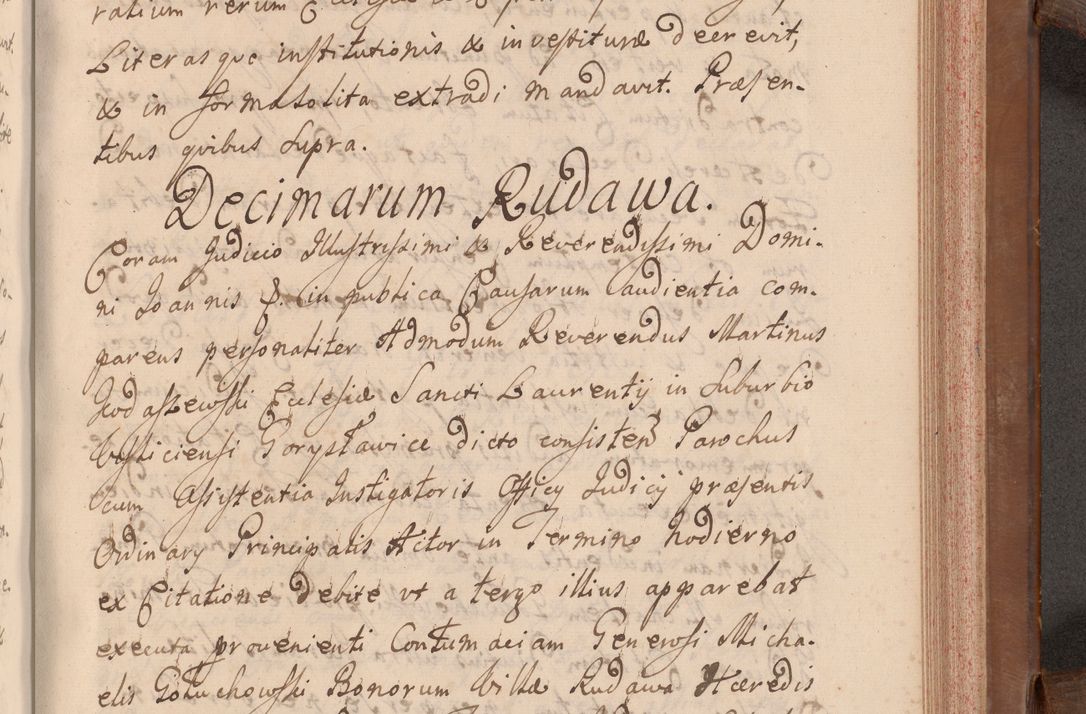 ratium rerum
Literasque institutionis & investituræ decrevit,
& in forma solita extradi mandavit. Præsen-
tibus quibus supra.
Decimarum Rudawa.
Coram Judicio Illustrissimi & Reverendissimi Domi-
ni Joannis &. in publica Causarum audientia com-
parens personaliter Admodum Reverendus Martinus
Kodaszewski Ecclesiæ Sancti Laurentij in Suburbio
Visliciensi Gorysławice dicto consisten Parochus
cum Assistentia Instigatoris Officij Judicij præsentis
Ordinarij Principalis Actor in Termino hodierno
ex Citatione debite ut a tergo illius apparebat
executa provenienti Contumaciam Generosi Micha-
elis Gołuchowski Bonorum Villæ Rudawa Hæredis